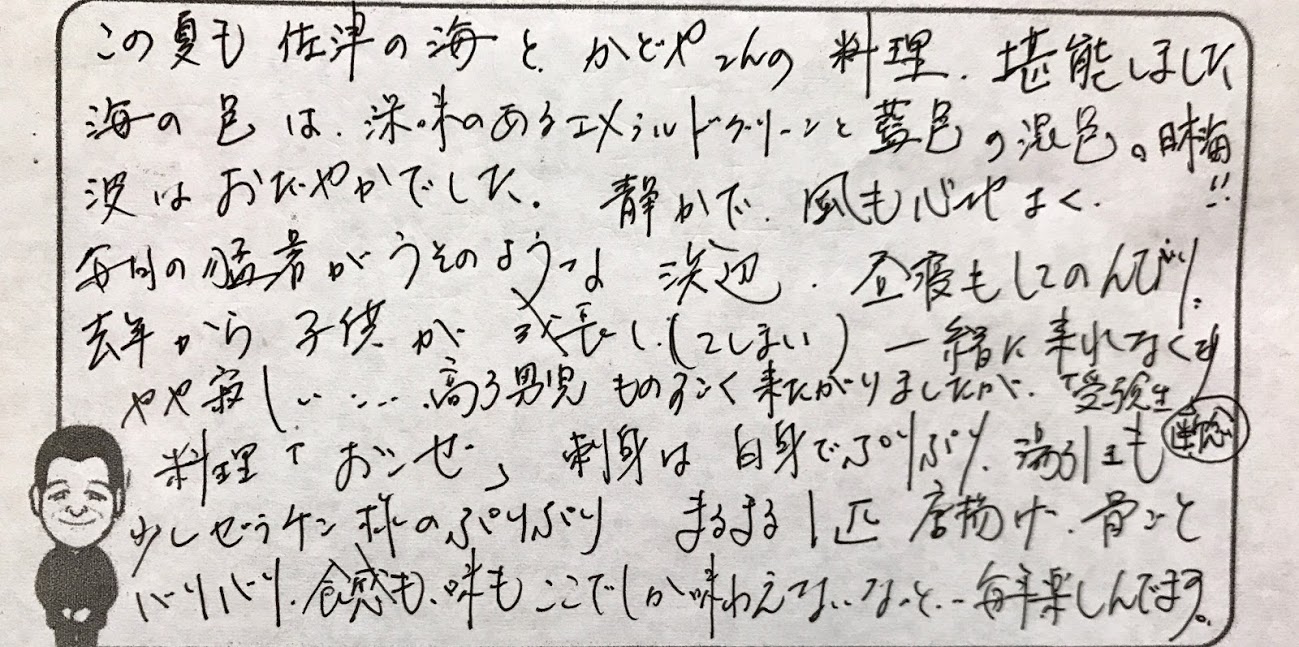 この夏も 佐津の海と、かどやさんの 料理、堪能しました
海の色は、深味のあるエメラルドグリーンと藍色の混色。日本海!!
波はおだやかでした。 静かで、風も心地よく、
毎日の猛暑がうそのような 浜辺、昼寝もしてのんびり。
去年から 子供が 成長し(てしまい) 一緒に来れなくて
やや寂しい……、高3男児 ものすごく来たがりましたが、「受験生」断念
料理「おこぜ」 刺身は 白身でぷりぷり、湯引きも
少しゼラチン状のぷりぷり まるまる1匹 唐揚げ、骨ごと
バリバリ、食感も、味も ここでしか味わえないなぁと、毎年楽しんでます。